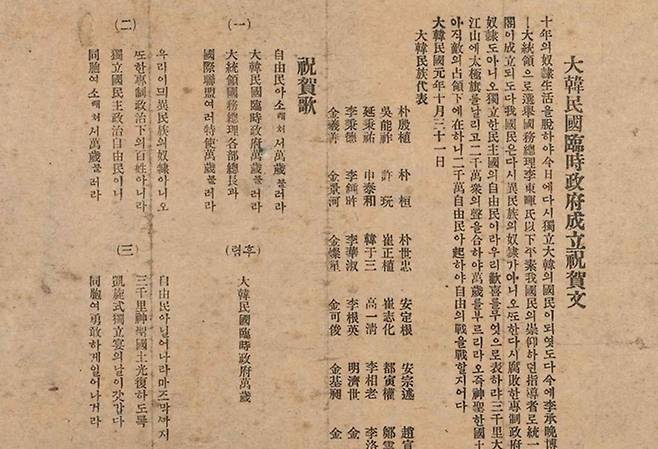 大韓民國臨時政府成立祝賀文
十年의奴隷生活을脫하야今日에다시獨立大韓의國民이되엿도다今에李承晩博
大統領으로選擧國務總理李東輝氏以下平素我國民의崇仰하던指導者로統一
閣이成立되도다我國民은다시異民族의奴隷가아니오또한다시腐敗한專制政府
奴隷도아니오獨立한民主國의自由民이라우리歡喜를무엇으로表하랴三千里大
江山에太極旗를날리고二千萬衆의聲을合하야萬歲를부르리라오즉神聖한國土
아직敵의占領下에在하니二千萬自由民아起하야自由의戰을戰할지어다
大韓民國元年十月三十一日
大韓民族代表
朴殷植 朴桓 朴世忠 安定根 安宗述 趙宣
吳能祚 許玩 崔正植 崔志化 都寅權 鄭
延秉祐 申泰和 韓于三 高一清 李相老 李洛
李秉德 李鍾 李華淑 李根英 明濟世 金
金義善 金景河 金燦星 金可俊 金基昶 金
祝賀歌
(一)
自由民아소래처서萬歲불러라
大韓民國臨時政府萬歲불러라
大統領國務總理各部總長과
國際聯盟여러特使萬歲불러라
(二)
우리이믜異民族의奴隷아니오
또한專制政治下의百姓아니라
獨立國民主政治自由民이니
同胞여소래처서萬歲불러라
(후렴)
大韓民國臨時政府萬歲
(三)
自由民아닐어나라마즈막까지
三千里神聖國土光復하도록
凱旋式獨立宴의날이갓갑다
同胞여勇敢하게일어나거라